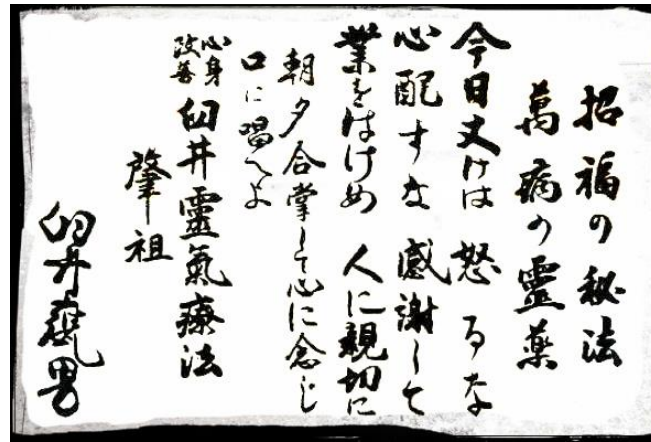 招福の秘法
萬病の靈薬
今日丈けは 怒るな
心配すな 感謝して
業をはげめ 人に親切に
朝夕合掌して心に念じ
口に唱へよ
心身
改善
臼井靈氣療法
肇祖
臼井甕男